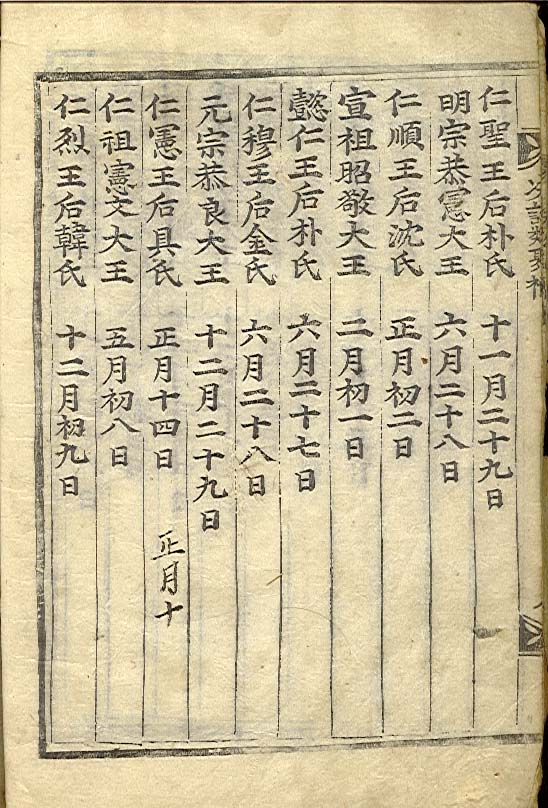 仁聖王后朴氏 十一月二十九日
明宗恭憲大王 六月二十八日
仁順王后沈氏 正月初二日
宣祖昭敬大王 二月初一日
懿仁王后朴氏 六月二十七日
仁穆王后金氏 六月二十八日
元宗恭良大王 十二月二十九日
仁憲王后具氏 正月十四日 正月十
仁祖憲文大王 五月初八日
仁烈王后韓氏 十二月初九日